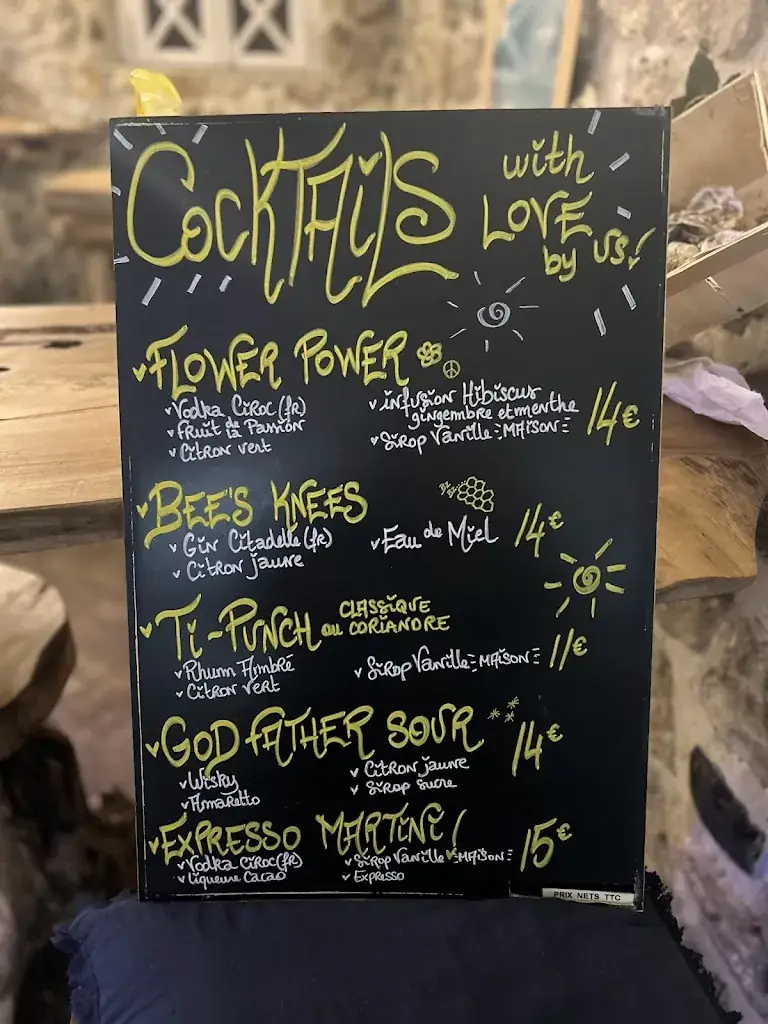 COCKTAILS with
LOVE
by US!
FLOWER POWER
Vodka Cîroc (fr)
fruit de la Passion
Citron vert
infusion Hibiscus
gingembre et menthe
Sirop Vanille MAISON
14€
BEE'S KNEES
Gin Citadelle (fr)
Citron jaune
Bzz Bzzz
Eau de Miel
14€
Ti-PUNCH CLASSIQUE
ou CORIANDRE
Rhum Ambré
Citron vert
Sirop Vanille MAISON
11€
GODFATHER SOUR
Wisky
Amaretto
Citron jaune
Sirop sucre
14€
EXPRESSO MARTINI
Vodka Cîroc (fr)
liqueure Cacao
Sirop Vanille MAISON
Expresso
15€
PRIX NETS TTC